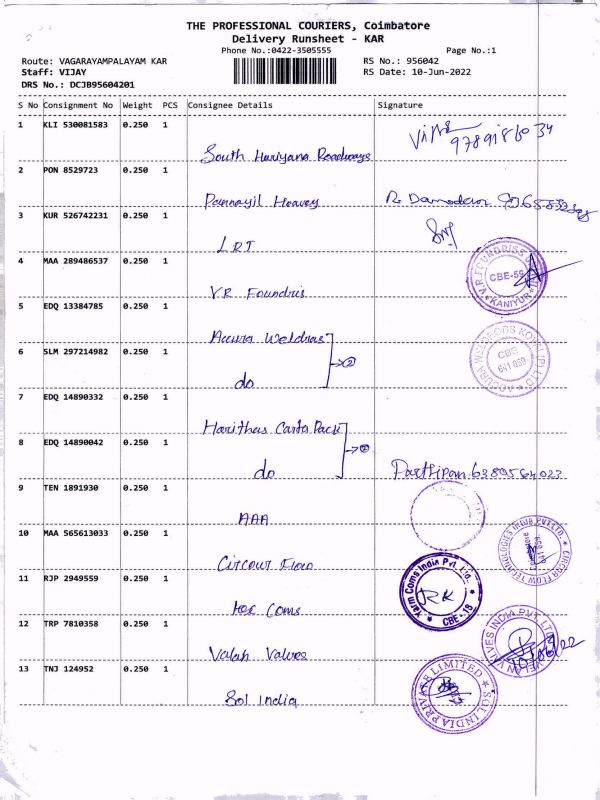 THE PROFESSIONAL COURIERS, Coimbatore
Delivery Runsheet - KAR
Phone No.:0422-3505555
Page No.:1
Route: VAGARAYAMPALAYAM KAR
RS No.: 956042
Staff: VIJAY
RS Date: 10-Jun-2022
DRS No.: DCJB95604201
S No Consignment No Weight PCS Consignee Details Signature
1 KLI 530081583 0.250 1
South Hariyana Roadways
2 PON 8529723 0.250 1
Pannayil Heavey R. Damodaran
3 KUR 526742231 0.250 1
LRT
4 MAA 289486537 0.250 1
V.R Foundris
V.R.FOUNDRISS
CBE-59
KANIYUR
5 EDQ 13384785 0.250 1
Accura Weldras
6 SLM 297214982 0.250 1
do
CBE
641 030
7 EDQ 14890332 0.250 1
Harithas Carto Pack
8 EDQ 14890042 0.250 1
do Parthipan 6389564023
9 TEN 1891930 0.250 1
AAA
10 MAA 565613033 0.250 1
Circour Flow
CIRCOR FLOW TECHNOLOGIES INDIA PVT LTD.
11 RJP 2949559 0.250 1
Coms
Yarm Coms India Pvt. Ltd.
RK
CBE-15
12 TRP 7810358 0.250 1
Velan Valves
VELAN VALVES INDIA PVT. LTD
13 TNJ 124952 0.250 1
Sol India
SOL INDIA PRIVATE LIMITED